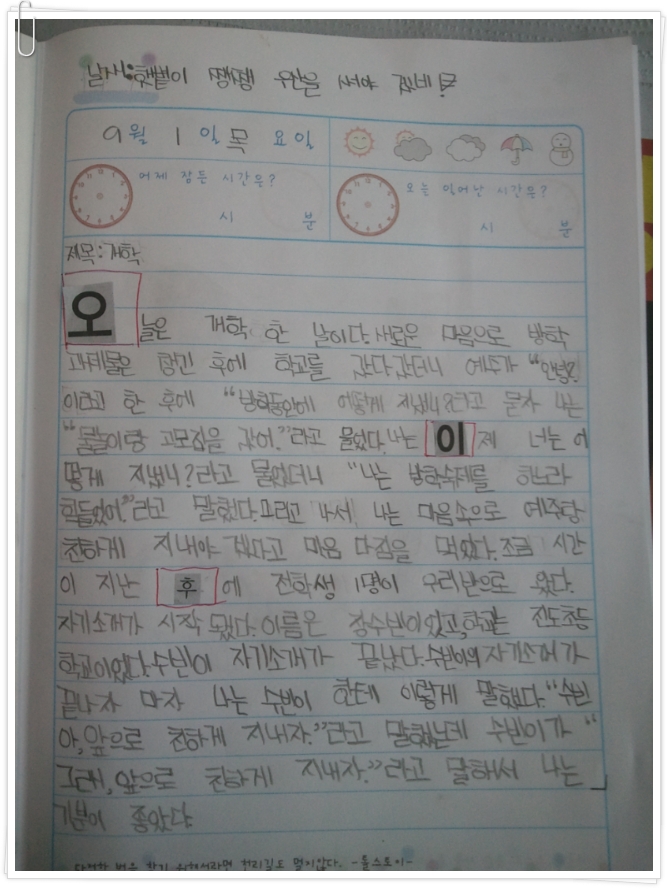 날씨:햇볕이 쨍쨍 우산을 써야 겠네!
9월 1일 목요일
어제 잠든 시간은? 오늘 일어난 시간은?
시 분 시 분
제목:개학
오늘은 개학 한 날이다.새로운 마음으로 방학
과제물은 챙긴 후에 학교를 갔다.갔더니 예주가 "안녕?
이라고 한 후에 "방학동안에 어떻게 지냈니?라고 묻자 나는
"물놀이랑 고모집을 갔어."라고 물었다.나는 이제 너는 어
떻게 지냈니?라고 물었더니 "나는 방학숙제를 하느라
힘들었어."라고 말했다.그리고 나서 나는 마음속으로 예주랑
친하게 지내야 겠다고 마음 다짐을 먹었다.조금 시간
이 지난 후에 전학생 1명이 우리반으로 왔다.
자기소개가 시작 됐다.이름은 장수빈이 있고,학교는 진도초등
학교이었다.수빈이 자기소개가 끝났다.수빈이의 자기소개가
끝나자 마자 나는 수빈이 한테 이렇게 말했다."수빈
아,앞으로 친하게 지내자."라고 말했는데 수빈이가 "
그래,앞으로 친하게 지내자."라고 말해서 나는
기분이 좋았다
위해서라면 천리길도 멀지않다. -톨스토이-